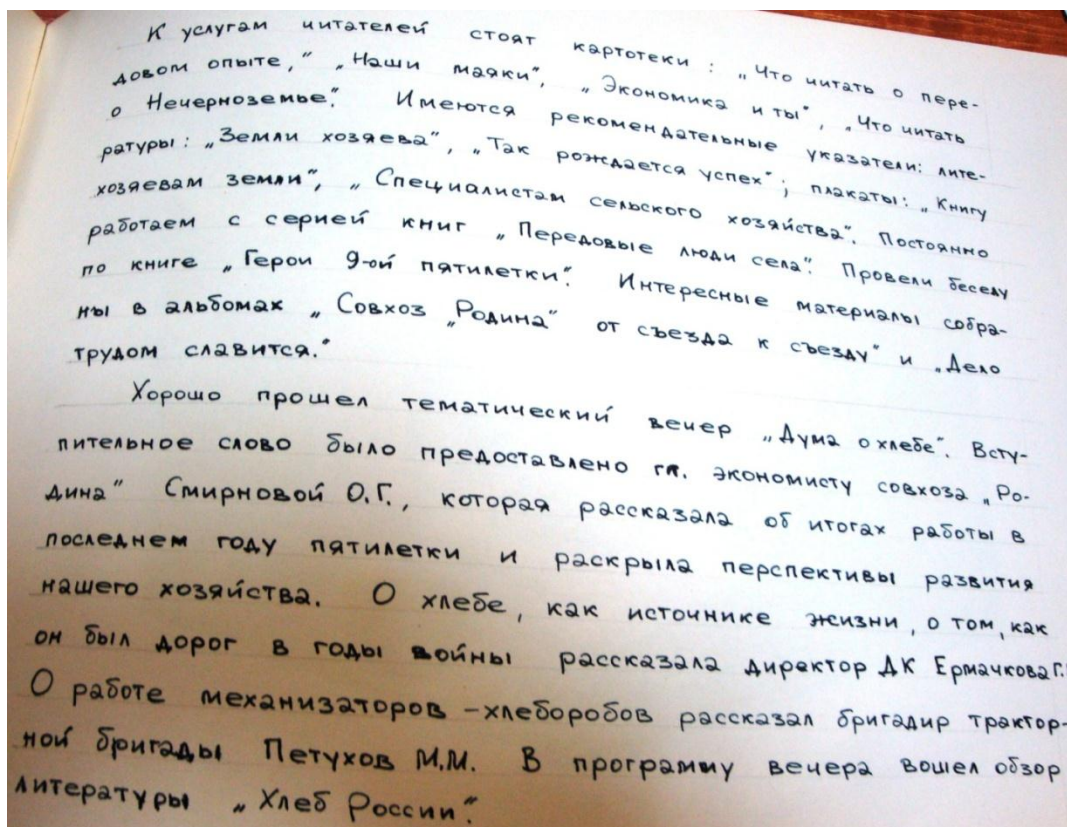 К услугам читателей стоят картотеки : „Что читать о пере-
довом опыте,“ „Наши маяки“, „Экономика и ты“, „Что читать
о Нечерноземье“. Имеются рекомендательные указатели: лите-
ратуры: „Земли хозяева“, „Так рождается успех“; плакаты: „Книгу
хозяевам земли“, „Специалистам сельского хозяйства“. Постоянно
работаем с серией книг „Передовые люди села“. Провели беседу
по книге „Герои 9-ой пятилетки“. Интересные материалы собра-
ны в альбомах „Совхоз „Родина“ от съезда к съезду“ и „Дело
трудом славится.“
Хорошо прошел тематический вечер „Дума о хлебе“. Всту-
пительное слово было предоставлено гл. экономисту совхоза „Ро-
дина“ Смирновой О.Г., которая рассказала об итогах работы в
последнем году пятилетки и раскрыла перспективы развития
нашего хозяйства. О хлебе, как источнике жизни, о том, как
он был дорог в годы войны рассказала директор ДК Ермачкова Г.
О работе механизаторов -хлеборобов рассказал бригадир трактор-
ной бригады Петухов М.М. В программу вечера вошел обзор
литературы „Хлеб России“.